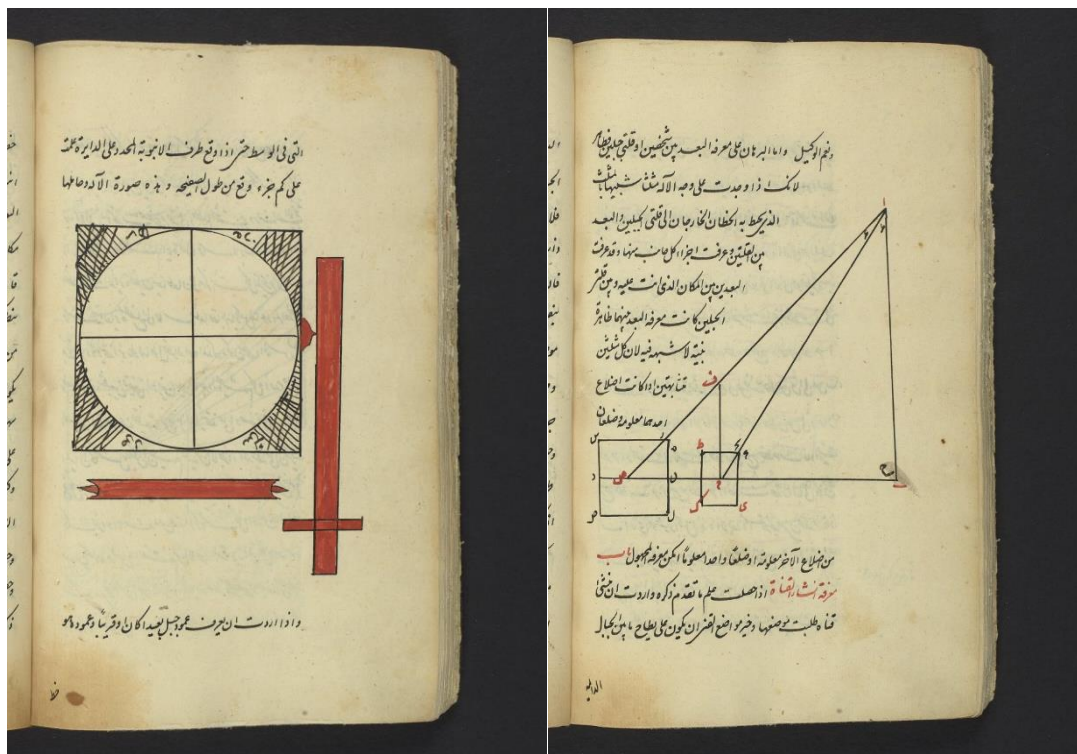 التى فى الوسط حتى اذا وقع طرف الانبوبة المحدد على الدايرة علمت
على كم جزء وقع من طول الصفيحة و هذه صورة الآلة وحاملها
واذا اردت ان تعرف عمود جبل بعيدا كان او قريبا وعمود ما هو
ونعم الوكيل واما البرهان على معرفة البعد بين شخصين او قلتى جبلين فظاهر
لانك اذا وجدت على وجه الآلة مثلثا شبيها بالمثلث
الذى يحيط به الخطان الخارجان الى قلتى الجبلين والبعد
بين القلتين وعرفت اجزاء كل جانب منها وقد عرفت
البعدين بين المكان الذى انت عليه وبين قلتى
الجبلين كانت معرفة البعد بينهما ظاهرة
بينة لا شبهة فيه لان كل مثلثين
متشابهتين اذا كانت اضلاع
احدهما معلومة وضلعان
من اضلاع الآخر معلومة او ضلعا واحدا معلوما امكن معرفة المجهول باب
معرفة انشاء القناة اذا حصلت علم ما تقدم ذكره واردت ان تنشئ
قناة طلبت موضعها وخير مواضع القنى ان يكون على بطاح ما بين الجبال